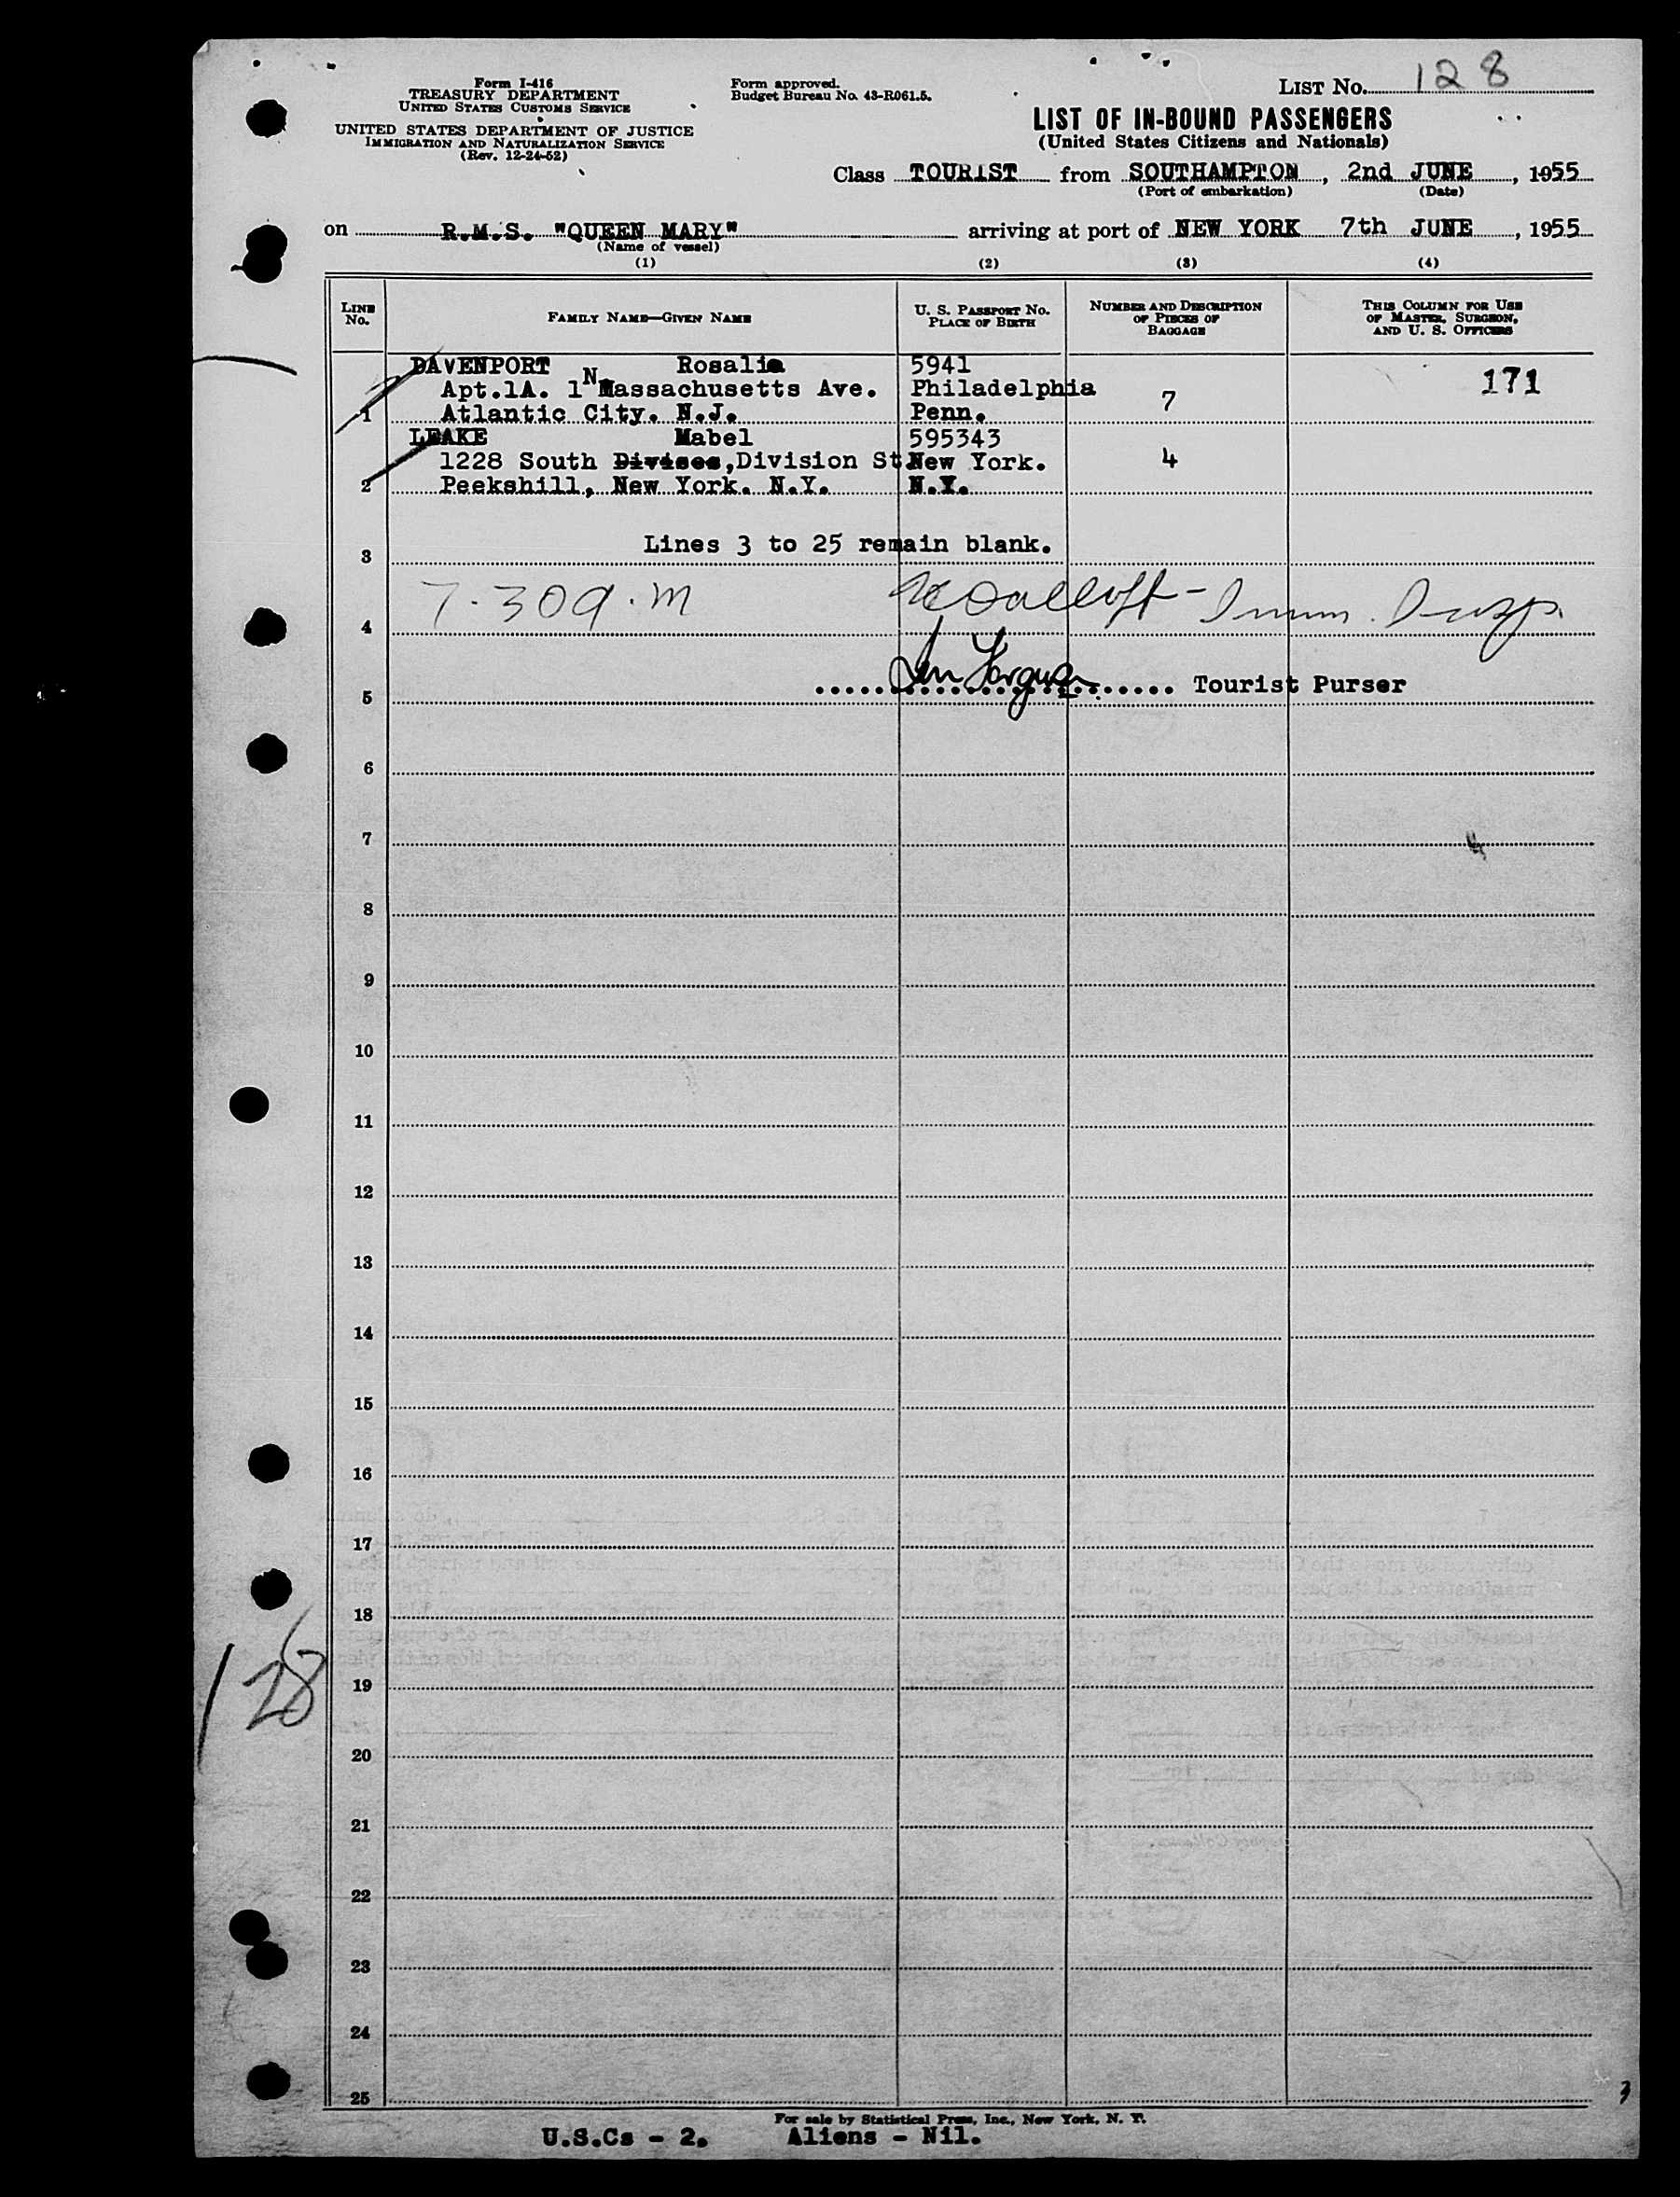 Form I-416
TREASURY DEPARTMENT
UNITED STATES CUSTOMS SERVICE
UNITED STATES DEPARTMENT OF JUSTICE
IMMIGRATION AND NATURALIZATION SERVICE
(Rev. 12-24-52)
Form approved.
Budget Bureau No. 43-R061.5.
LIST No. 128
LIST OF IN-BOUND PASSENGERS
(United States Citizens and Nationals)
Class TOURIST from SOUTHAMPTON, 2nd JUNE, 1955
(Port of embarkation) (Date)
on R.M.S. "QUEEN MARY" arriving at port of NEW YORK 7th JUNE, 1955
(Name of vessel)
(1) (2) (3) (4)
LINE No. FAMILY NAME—GIVEN NAME U. S. PASSPORT No. PLACE OF BIRTH NUMBER AND DESCRIPTION OF PIECES OF BAGGAGE THIS COLUMN FOR USE OF MASTER, SURGEON, AND U. S. OFFICERS
DAVENPORT Rosalie 5941 171
Apt.1A. 1 N Massachusetts Ave. Philadelphia 7
1 Atlantic City. N.J. Penn.
LEAKE Mabel 595343
1228 South Divises,Division St New York. 4
2 Peekshill, New York. N.Y. N.Y.
Lines 3 to 25 remain blank.
3
7.30 a.m
4
Tourist Purser
5
6
7
8
9
10
11
12
13
14
15
16
17
18
128
19
20
21
22
23
24
25
For sale by Statistical Press, Inc., New York, N. Y.
U.S.Cs - 2. Aliens - Nil.